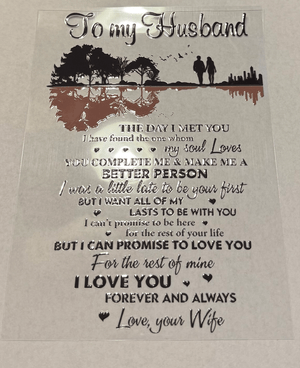 To my Husband
THE DAY I MET YOU
I have found the one whom
my soul Loves
YOU COMPLETE ME & MAKE ME A
BETTER PERSON
I was a little late to be your first
BUT I WANT ALL OF MY
LASTS TO BE WITH YOU
I can't promise to be here
for the rest of your life
BUT I CAN PROMISE TO LOVE YOU
For the rest of mine
I LOVE YOU
FOREVER AND ALWAYS
Love, your Wife